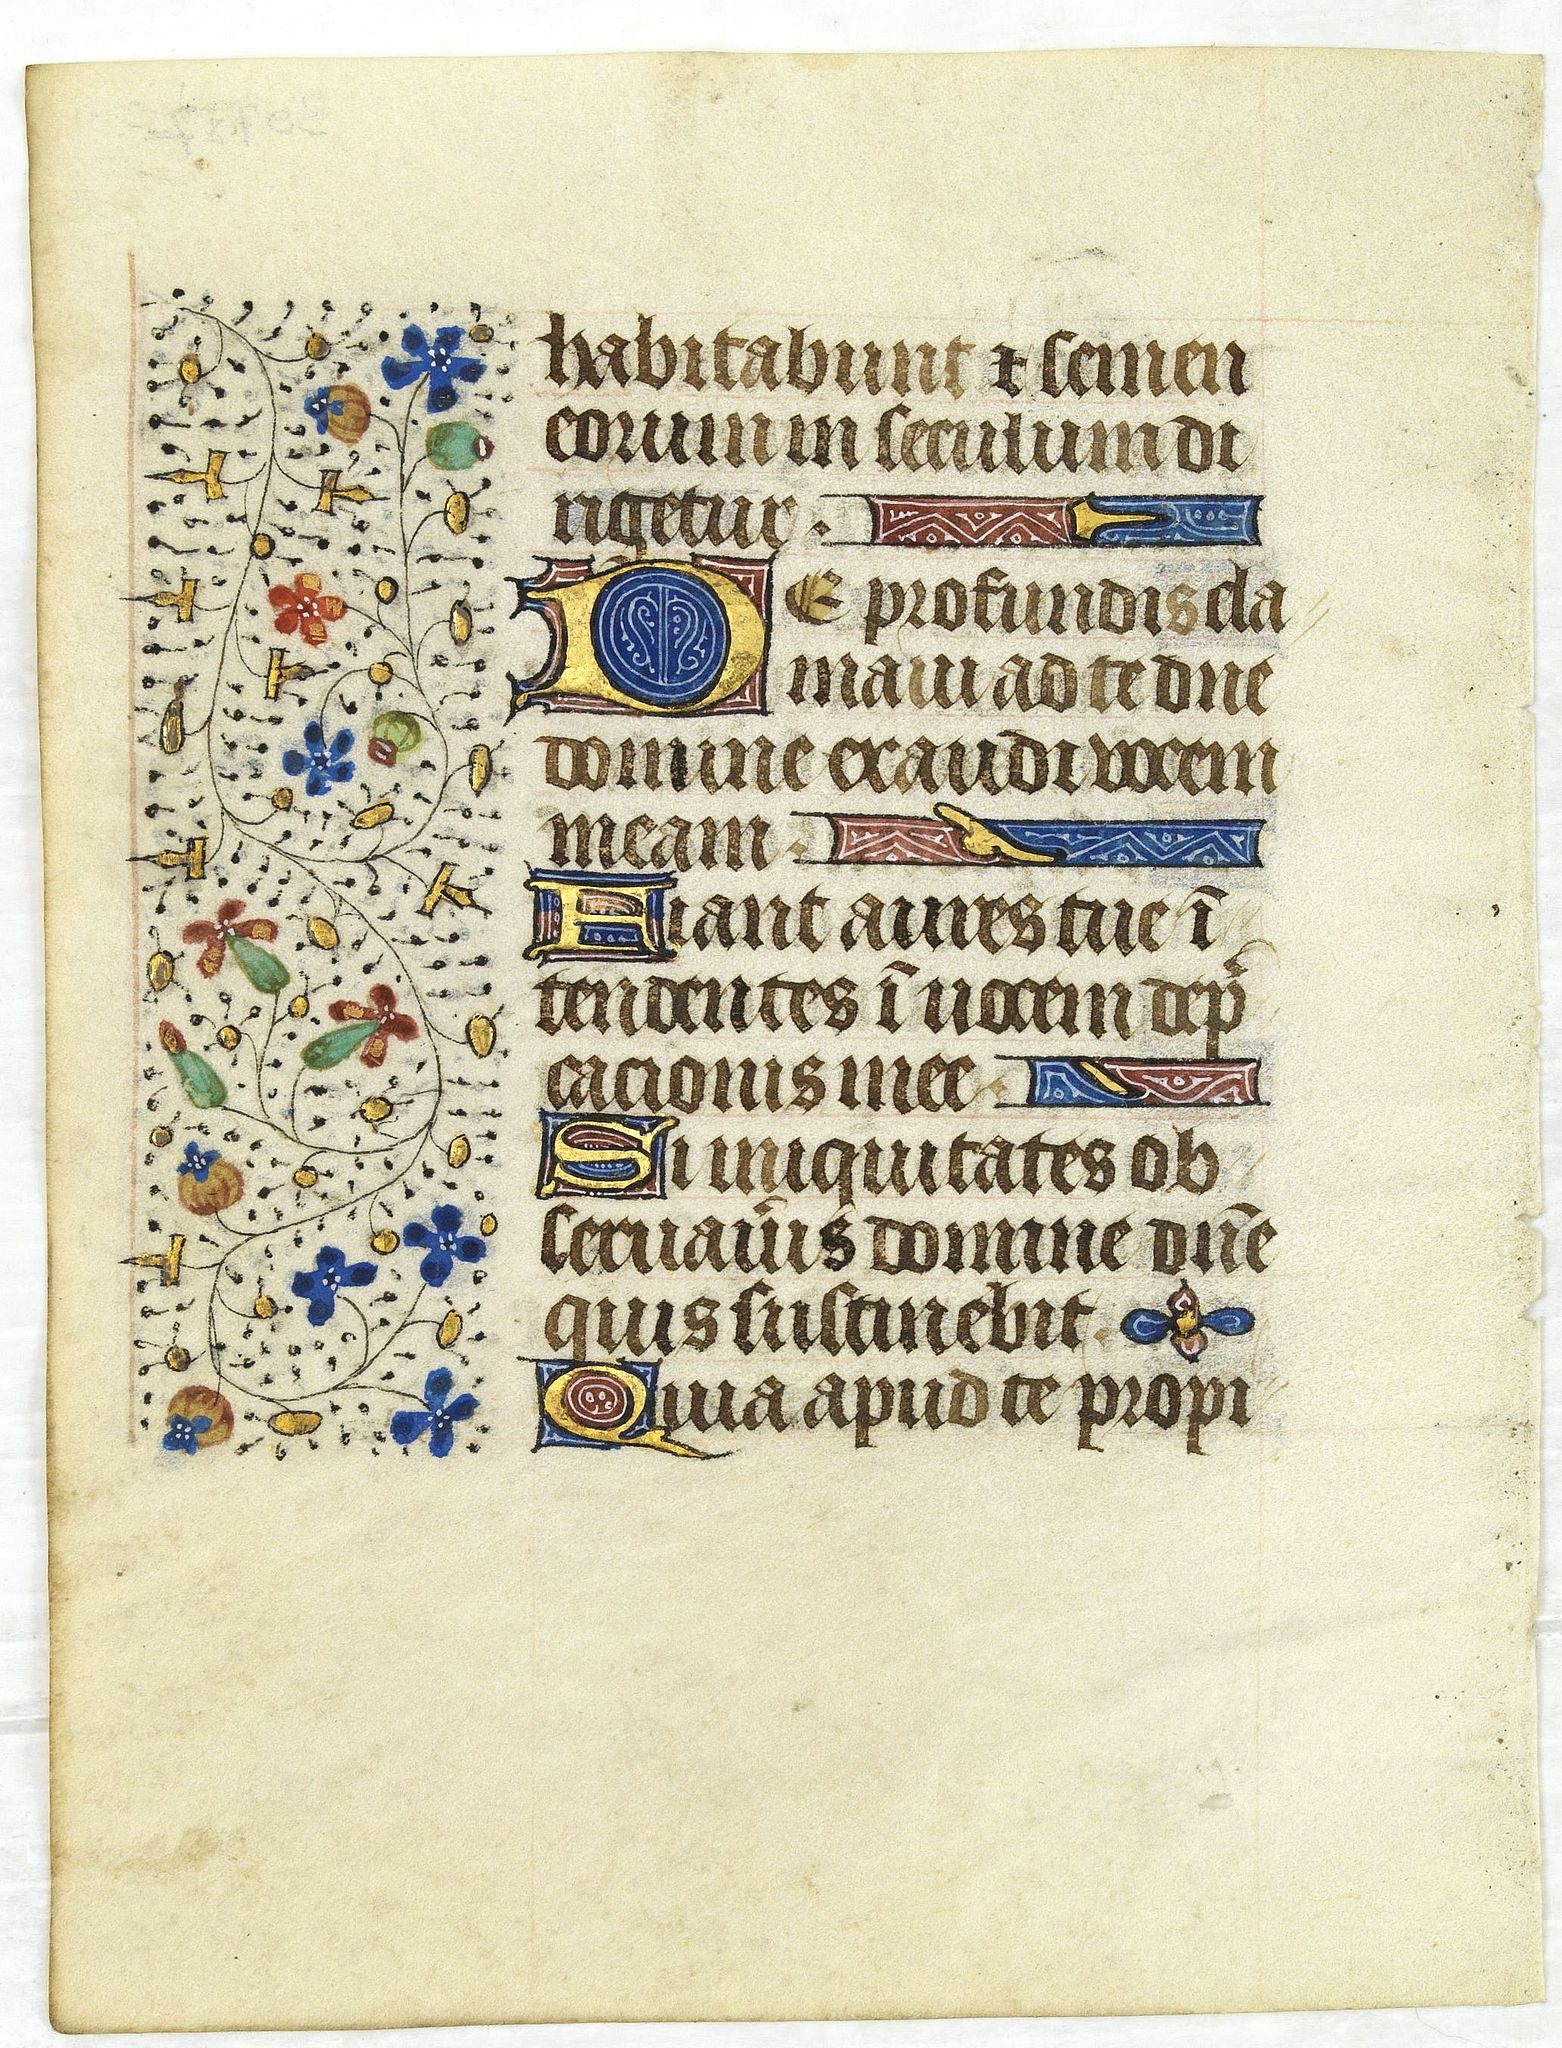 habitabunt ⁊ semen
eorum in seculum di
rigetur.
DE profundis cla
maui ad te dne
domine exaudi uocem
meam.
Fiant aures tue ī
tendentes ī uocem dep̄
cacionis mee.
Si iniquitates ob
seruau̅is domine dn̄e
quis sustinebit.
Quia apud te propi